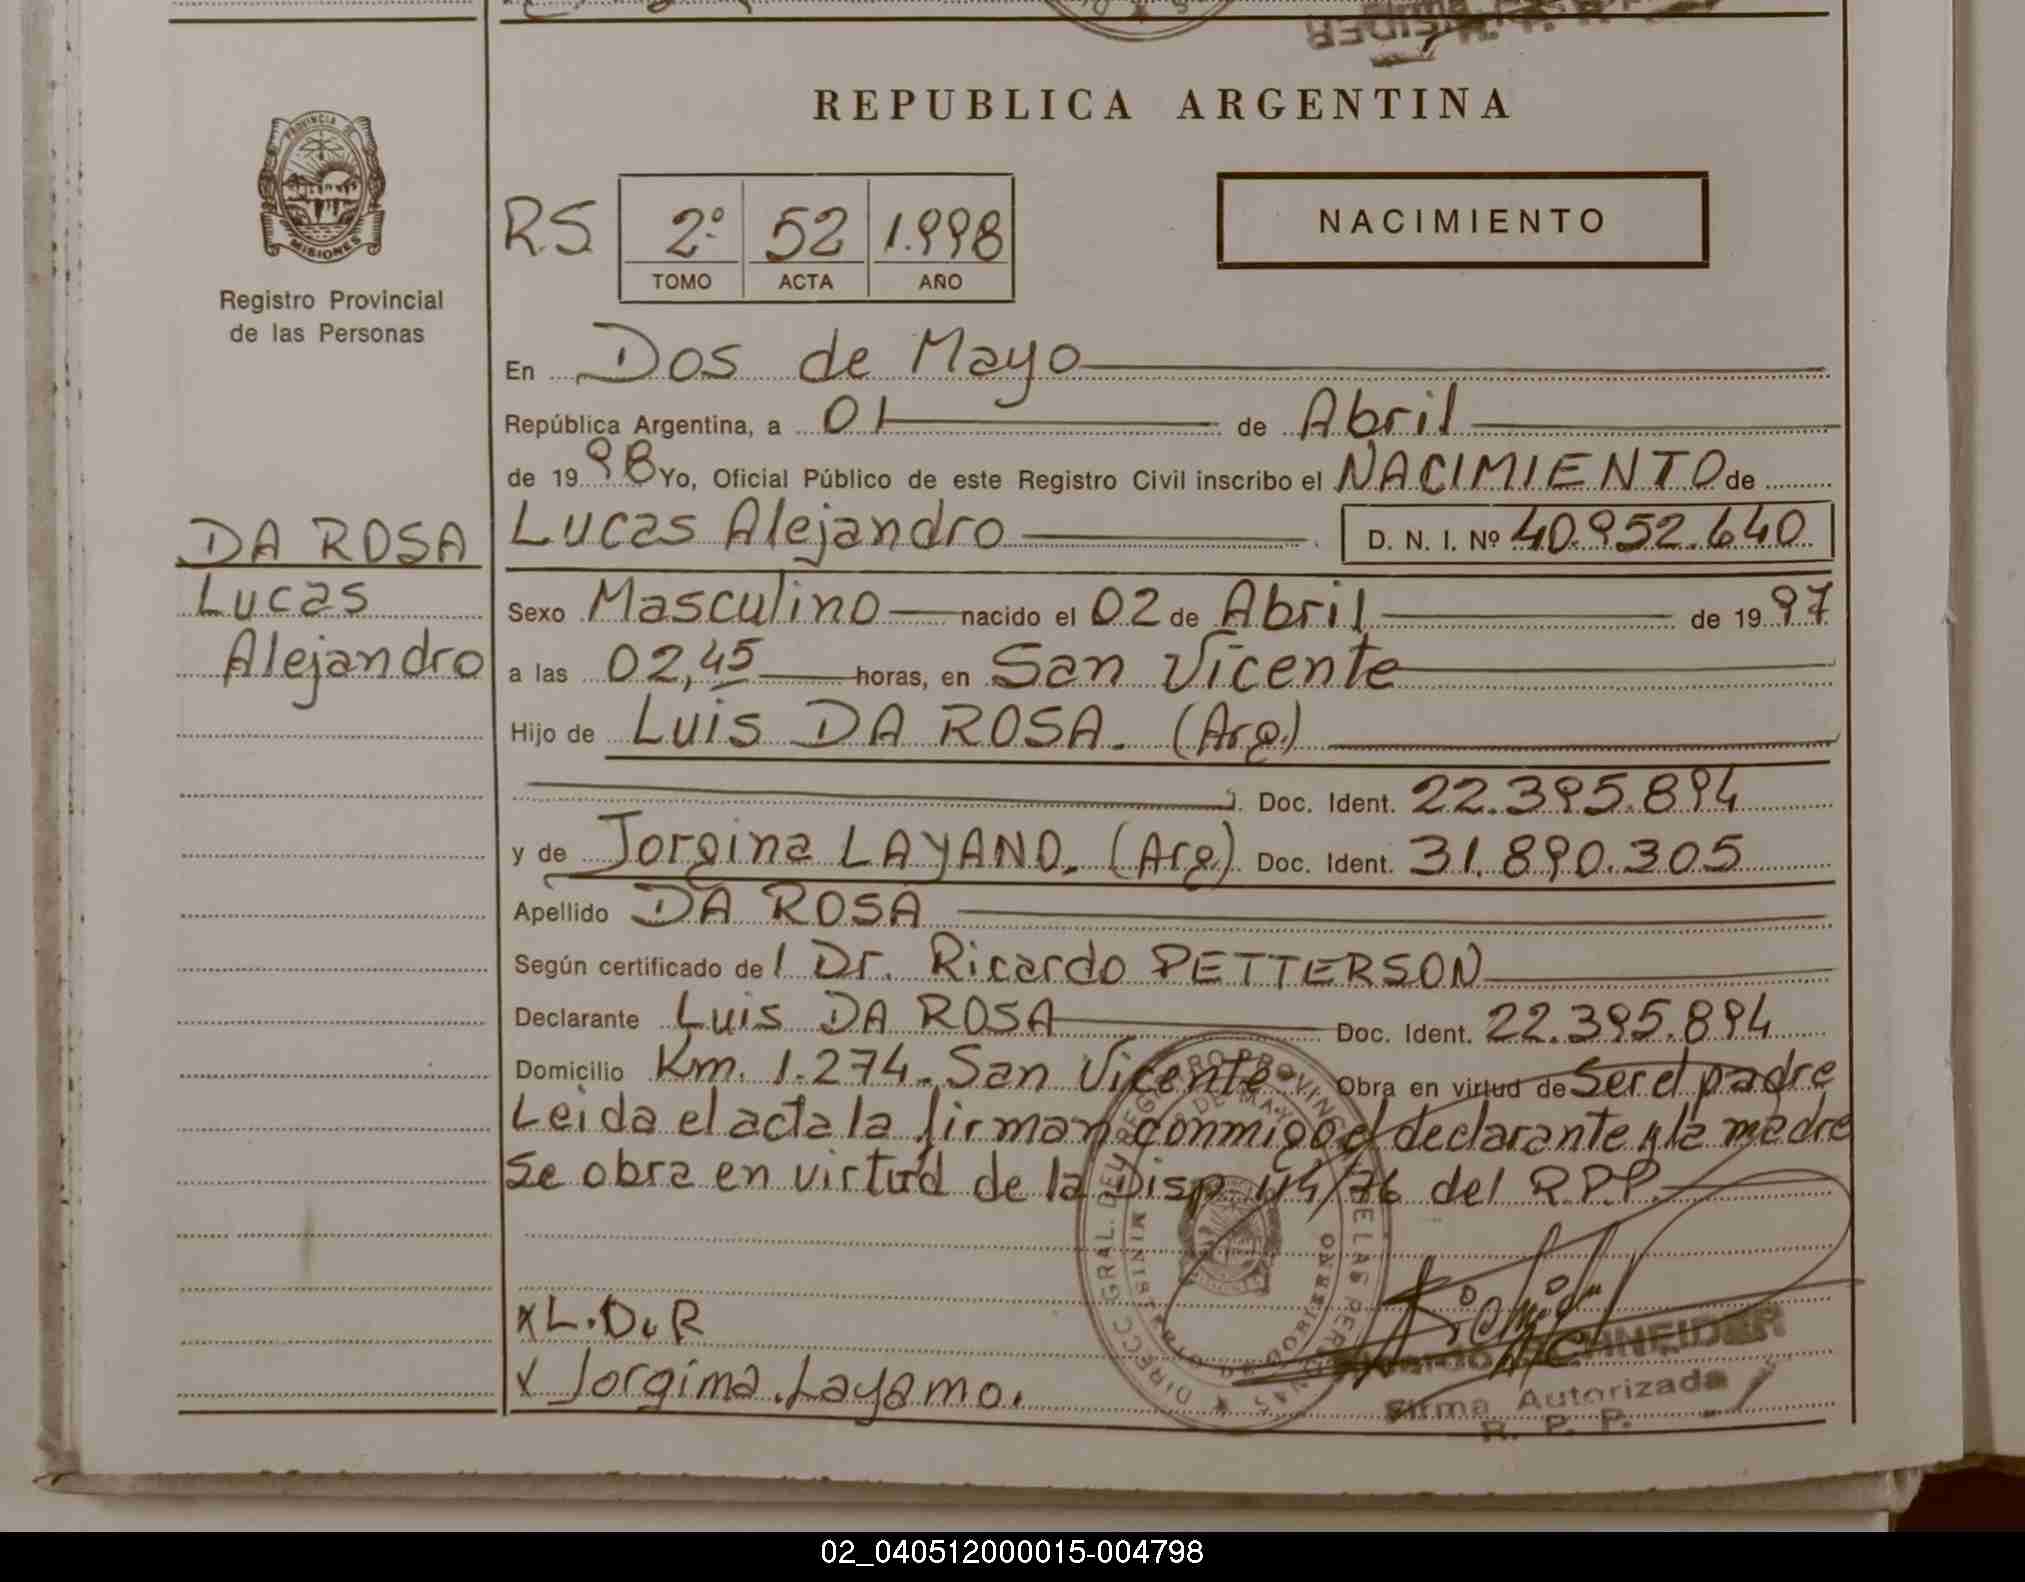 REPUBLICA ARGENTINA
PROVINCIA DE
MISIONES
Registro Provincial
de las Personas
RS 2º 52 1.998
TOMO ACTA AÑO
NACIMIENTO
En Dos de Mayo
República Argentina, a 01 de Abril
de 1998 Yo, Oficial Público de este Registro Civil inscribo el NACIMIENTO de
DA ROSA
Lucas
Alejandro
Lucas Alejandro D. N. I. Nº 40.952.640
Sexo Masculino nacido el 02 de Abril de 1997
a las 02,45 horas, en San Vicente
Hijo de Luis DA ROSA. (Arg.)
Doc. Ident. 22.395.894
y de Jorgina LAYANO. (Arg.) Doc. Ident. 31.890.305
Apellido DA ROSA
Según certificado del Dr. Ricardo PETTERSON
Declarante Luis DA ROSA Doc. Ident. 22.395.894
Domicilio Km. 1.274. San Vicente Obra en virtud de Ser el padre
Leida el acta la firman conmigo el declarante y la madre
Se obra en virtud de la Disp 114/76 del R.P.P.
x L.D.R
x Jorgima.Layamo.
SCHNEIDER
Firma Autorizada
R. P. P.
02_040512000015-004798